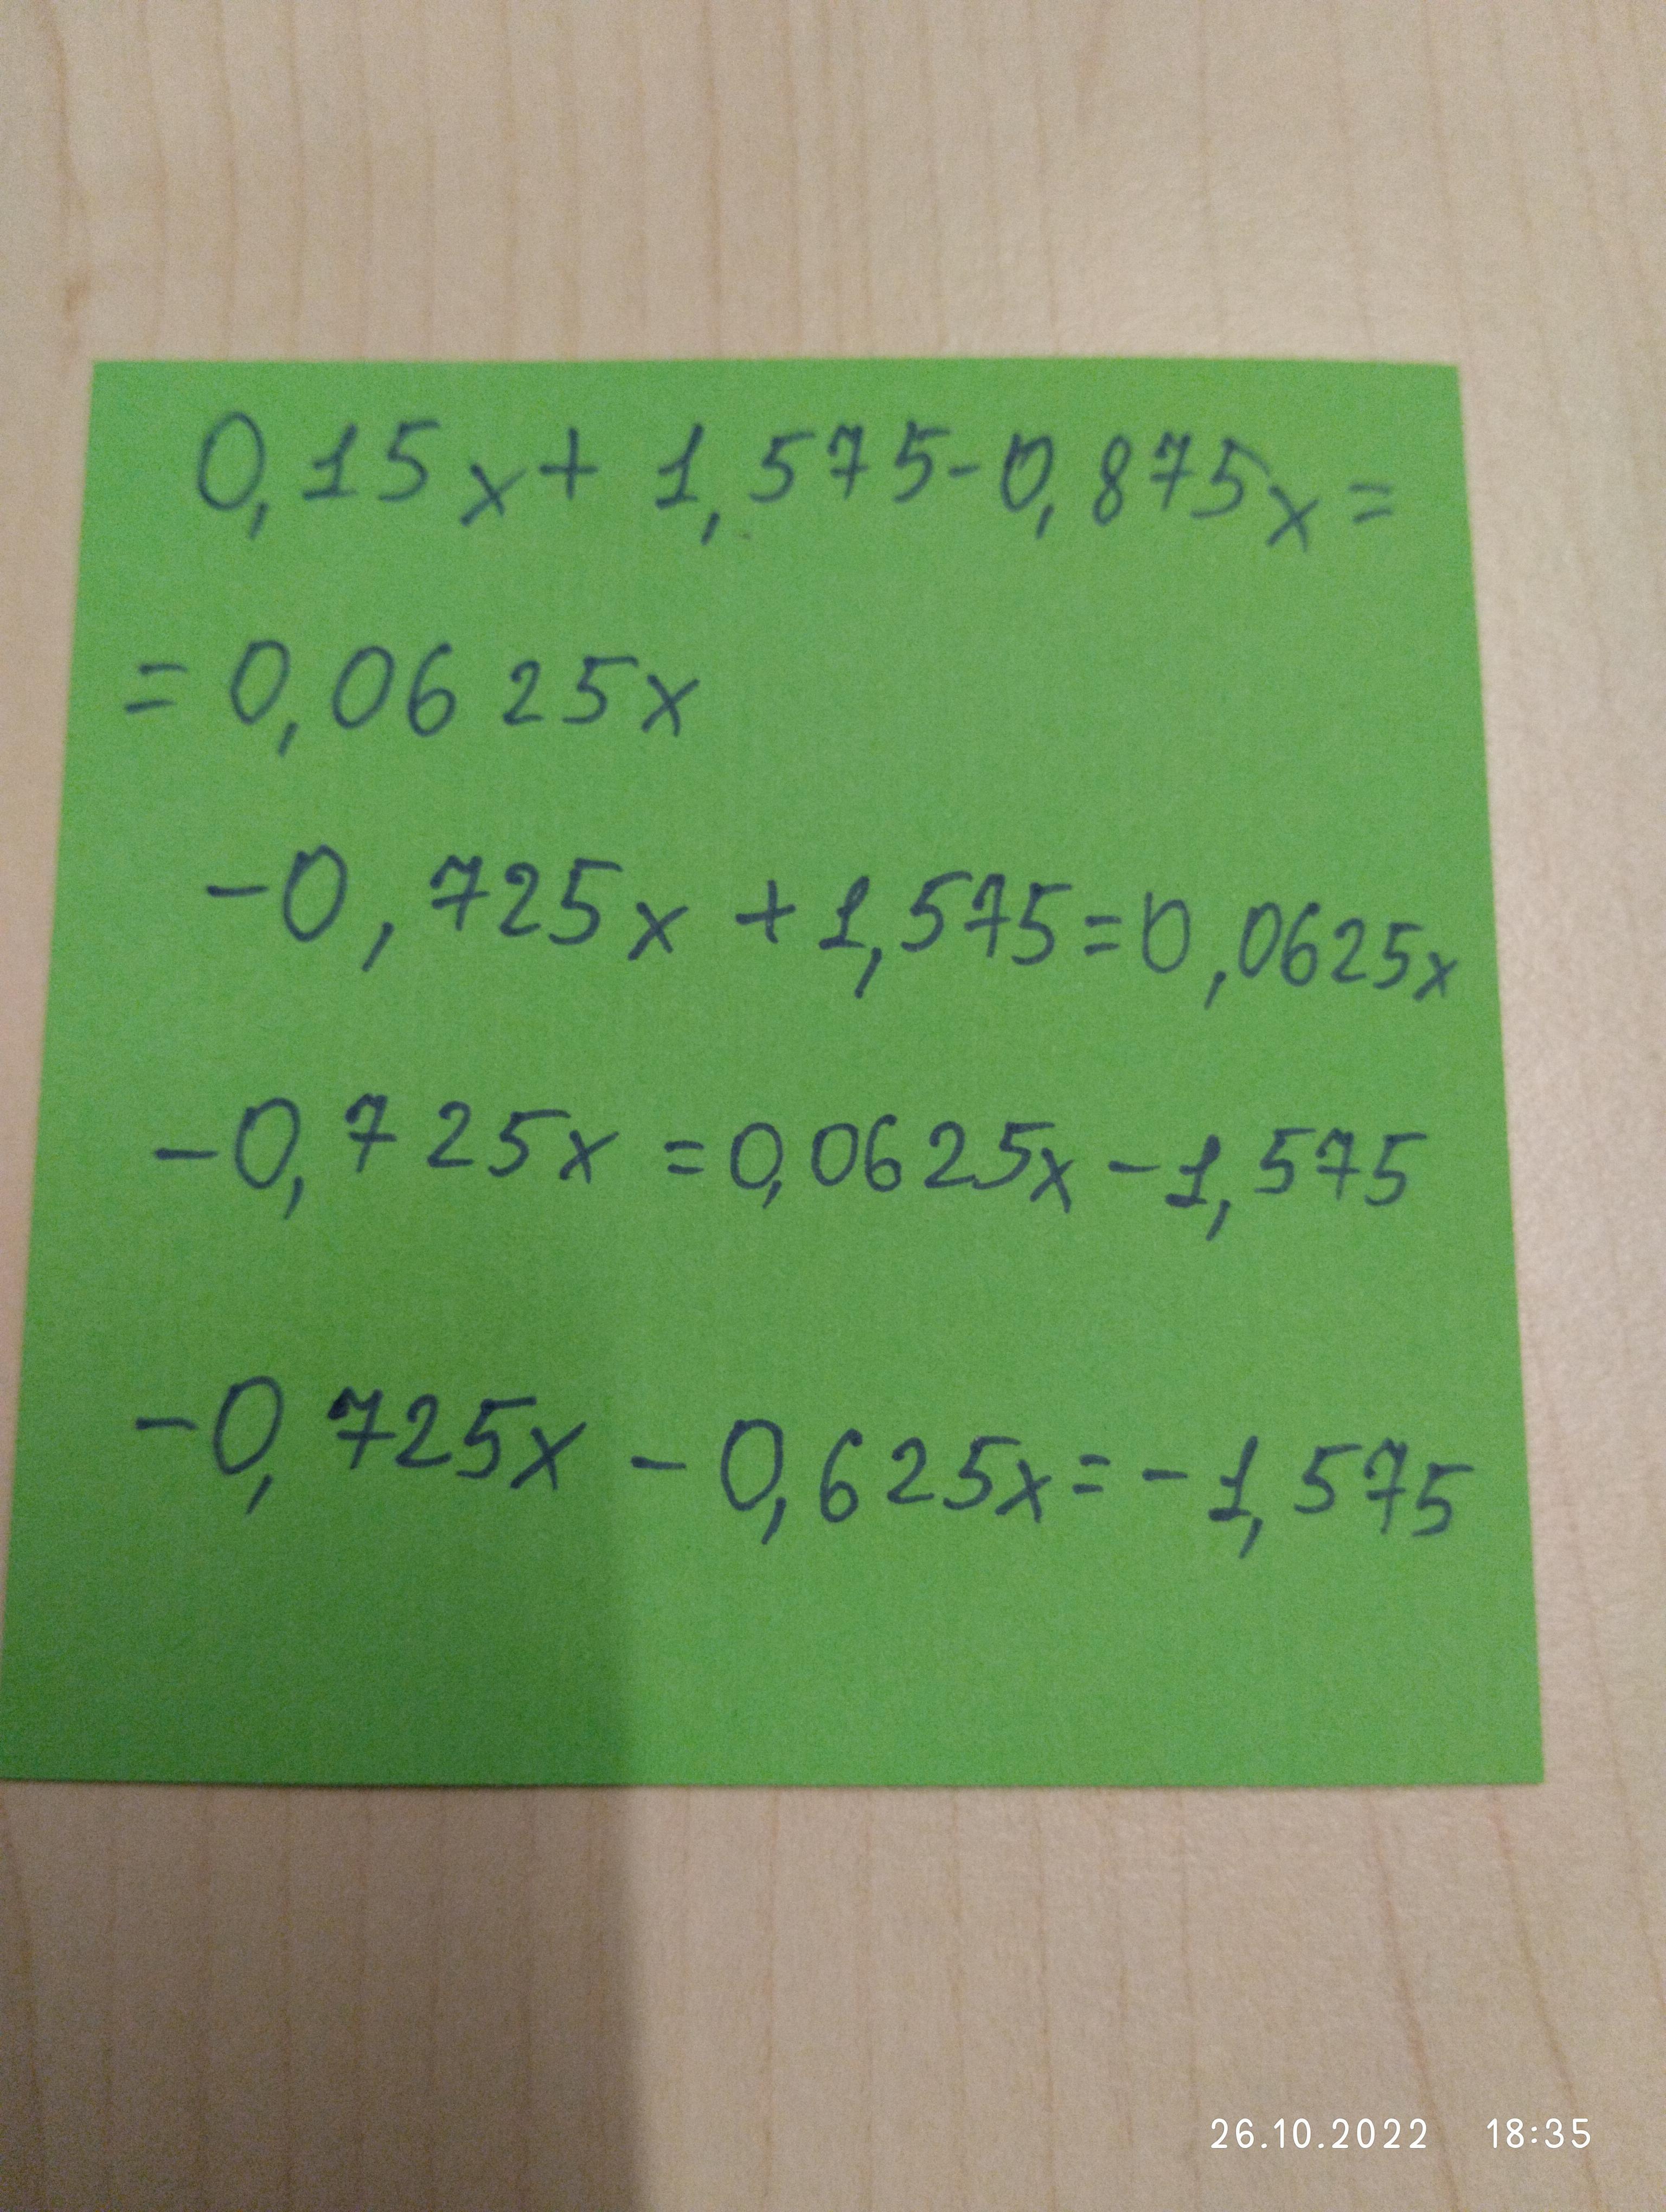 0,15x + 1,575-0,875x =
= 0,0625x
-0,725x + 1,575=0,0625x
-0,725x = 0,0625x - 1,575
-0,725x - 0,625x = - 1,575
26.10.2022 18:35